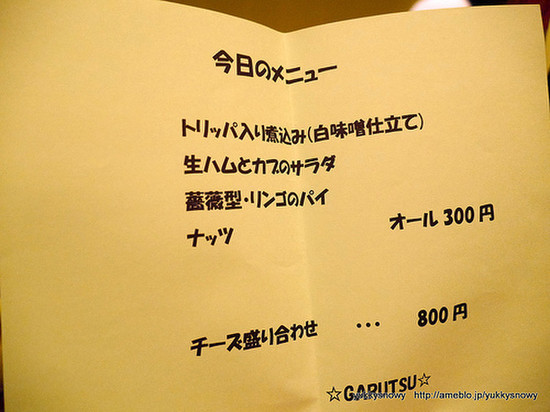 今日のメニュー
トリッパ入り煮込み(白味噌仕立て)
生ハムとカブのサラダ
薔薇型・リンゴのパイ
ナッツ
オール 300円
チーズ盛り合わせ ... 800円
☆GARUTSU☆
yukkysnowy http://ameblo.jp/yukkysnowy